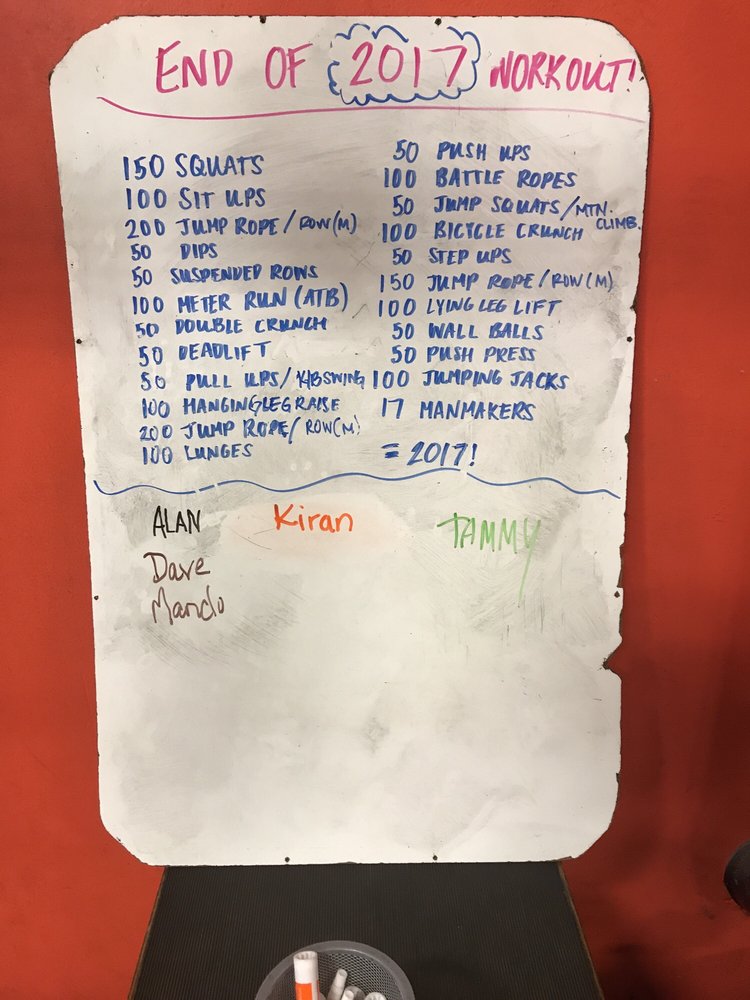 END OF 2017 WORKOUT!
150 SQUATS
100 SIT UPS
200 JUMP ROPE / ROW (M)
50 DIPS
50 SUSPENDED ROWS
100 METER RUN (ATB)
50 DOUBLE CRUNCH
50 DEADLIFT
50 PULL UPS / KB SWING
100 HANGING LEG RAISE
200 JUMP ROPE / ROW (M)
100 LUNGES
50 PUSH UPS
100 BATTLE ROPES
50 JUMP SQUATS / MTN. CLIMB.
100 BICYCLE CRUNCH
50 STEP UPS
150 JUMP ROPE / ROW (M)
100 LYING LEG LIFT
50 WALL BALLS
50 PUSH PRESS
100 JUMPING JACKS
17 MANMAKERS
= 2017!
ALAN
Dave
Mando
Kiran
TAMMY